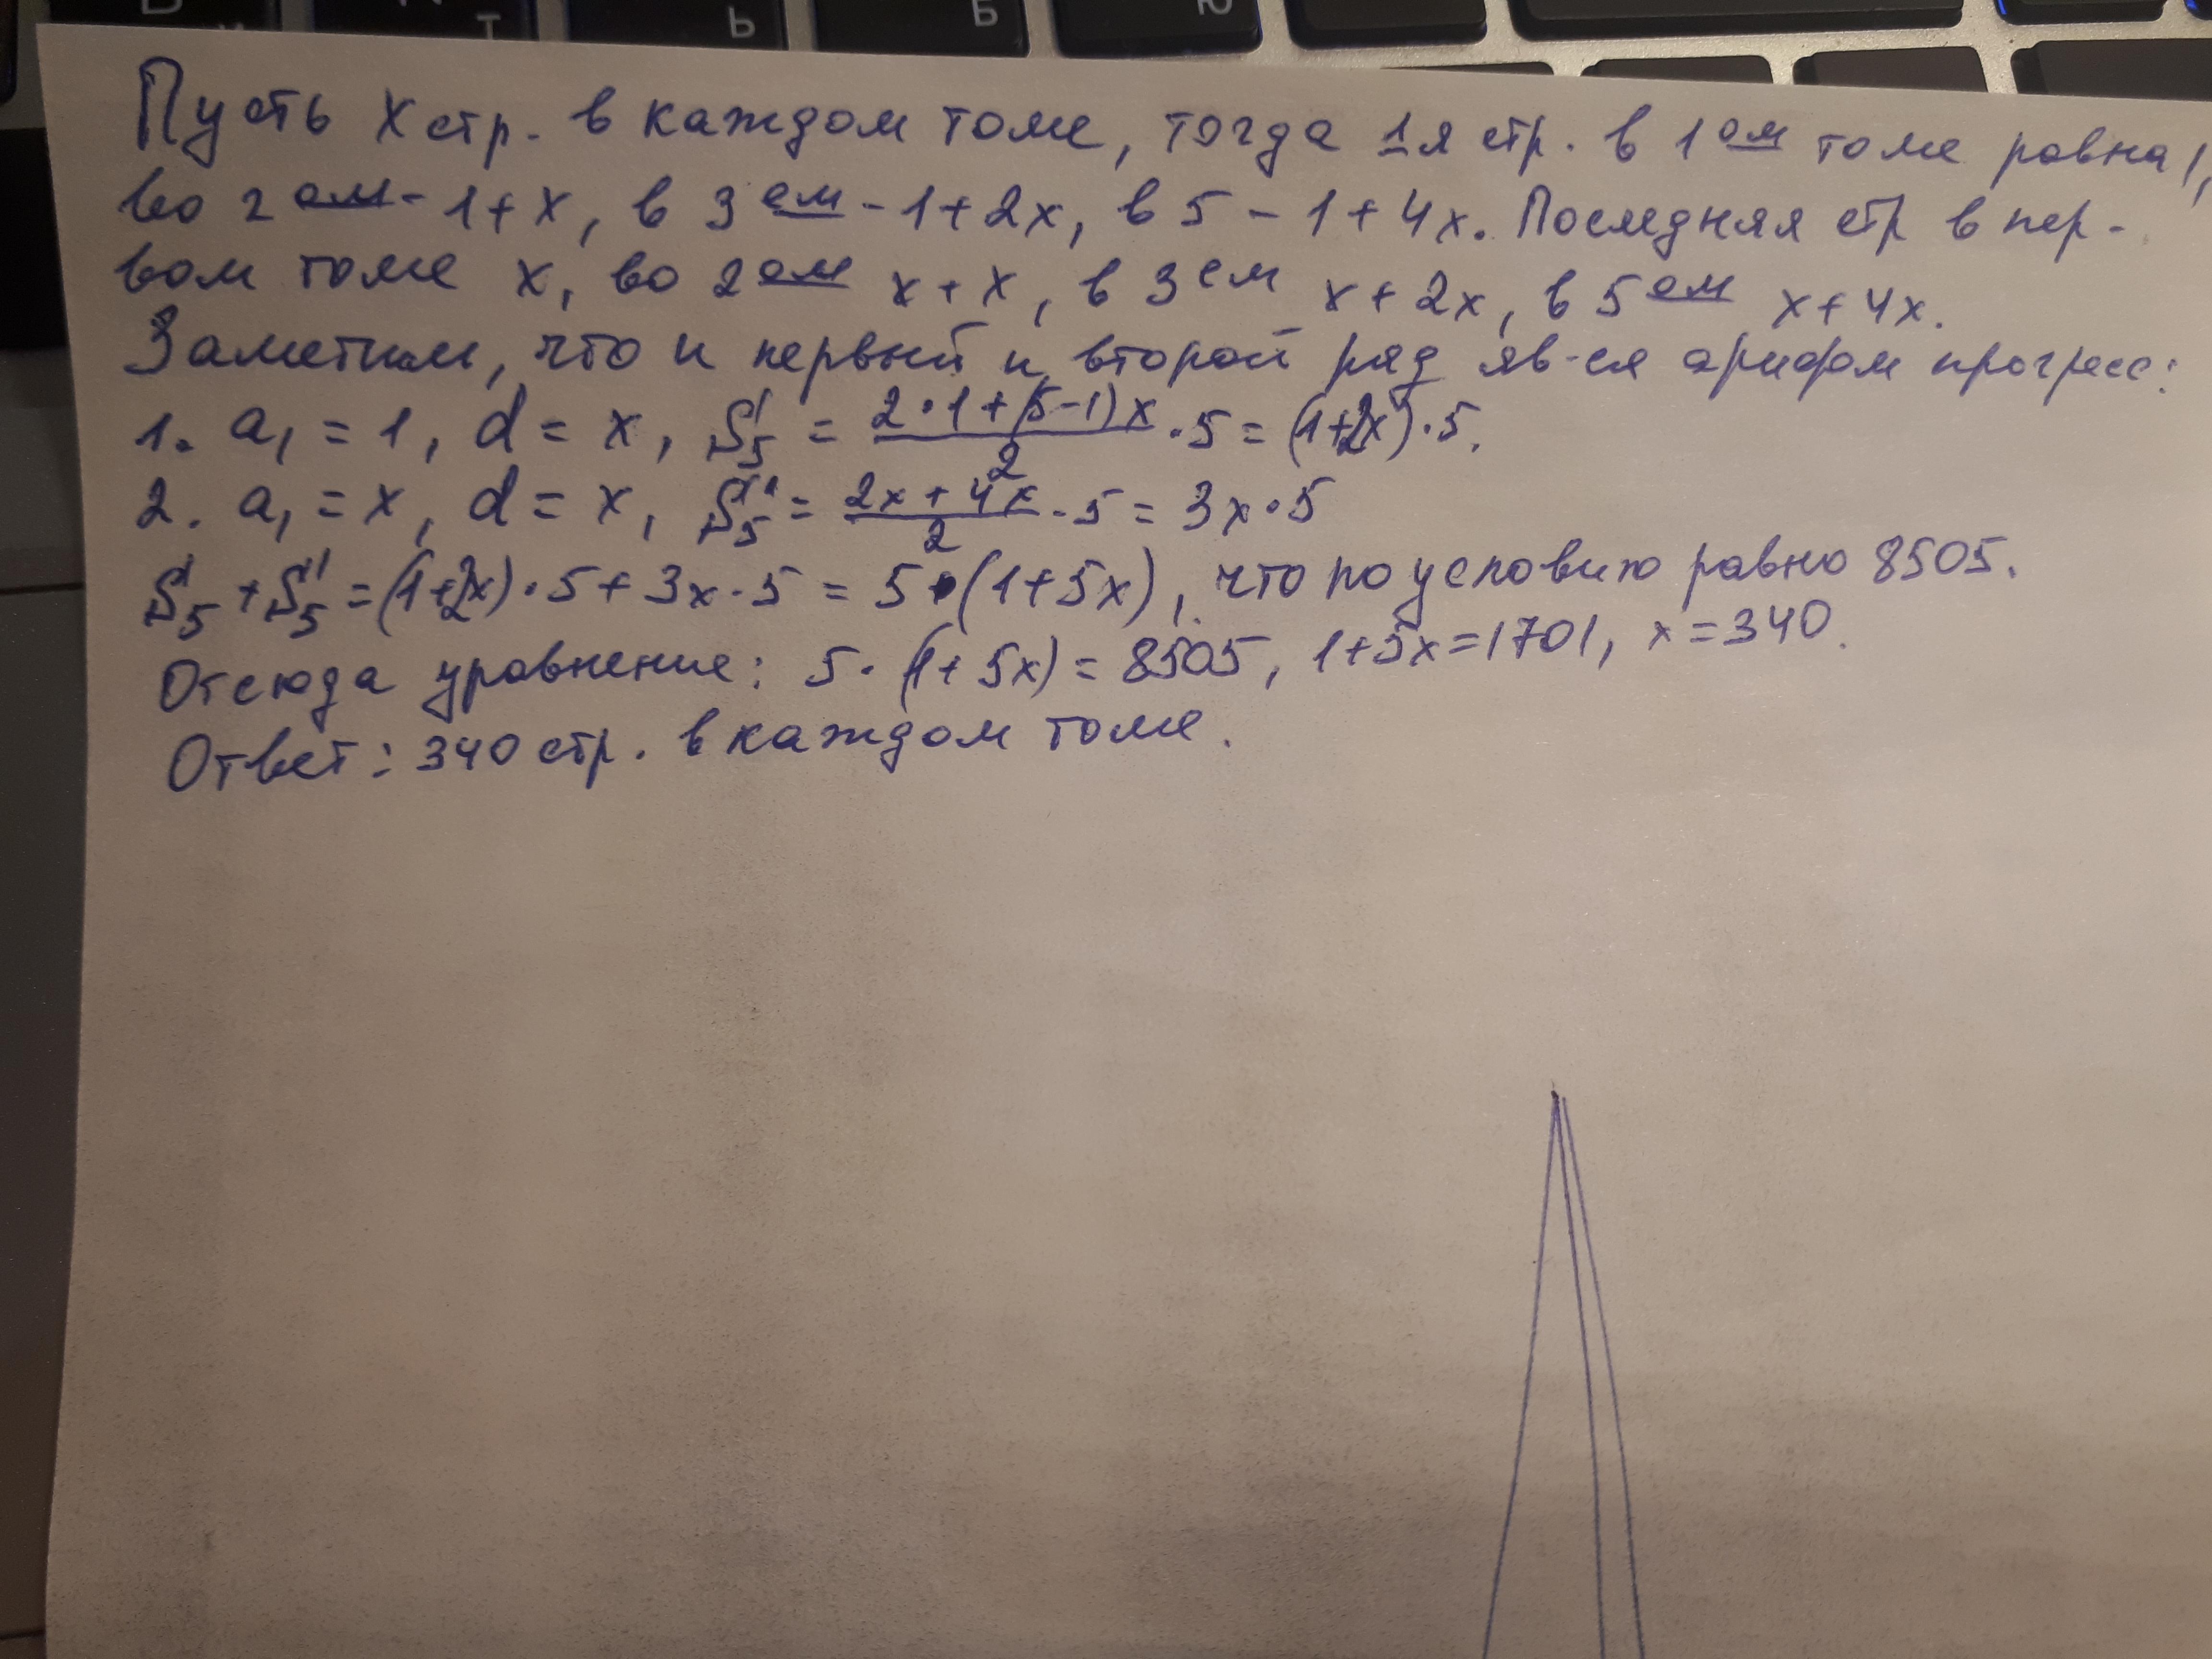 Т Ь Б Ю
Пусть x стр. в каждом томе, тогда 1я стр. в 1ом томе равна 1,
во 2ом - 1+x, в 3ем - 1+2x, в 5 - 1+4x. Последняя стр в пер-
вом томе x, во 2ом x+x, в 3ем x+2x, в 5ом x+4x.
Заметим, что и первый и второй ряд яв-ся арифм прогресс:
1. a₁ = 1, d = x, S₅' = (2·1+(5-1)x)/2 ·5 = (1+2x)·5.
2. a₁ = x, d = x, S₅'' = (2x+4x)/2 ·5 = 3x·5
S₅' + S₅'' = (1+2x)·5+3x·5 = 5·(1+5x), что по условию равно 8505.
Отсюда уравнение: 5·(1+5x) = 8505, 1+5x=1701, x=340.
Ответ: 340 стр. в каждом томе.